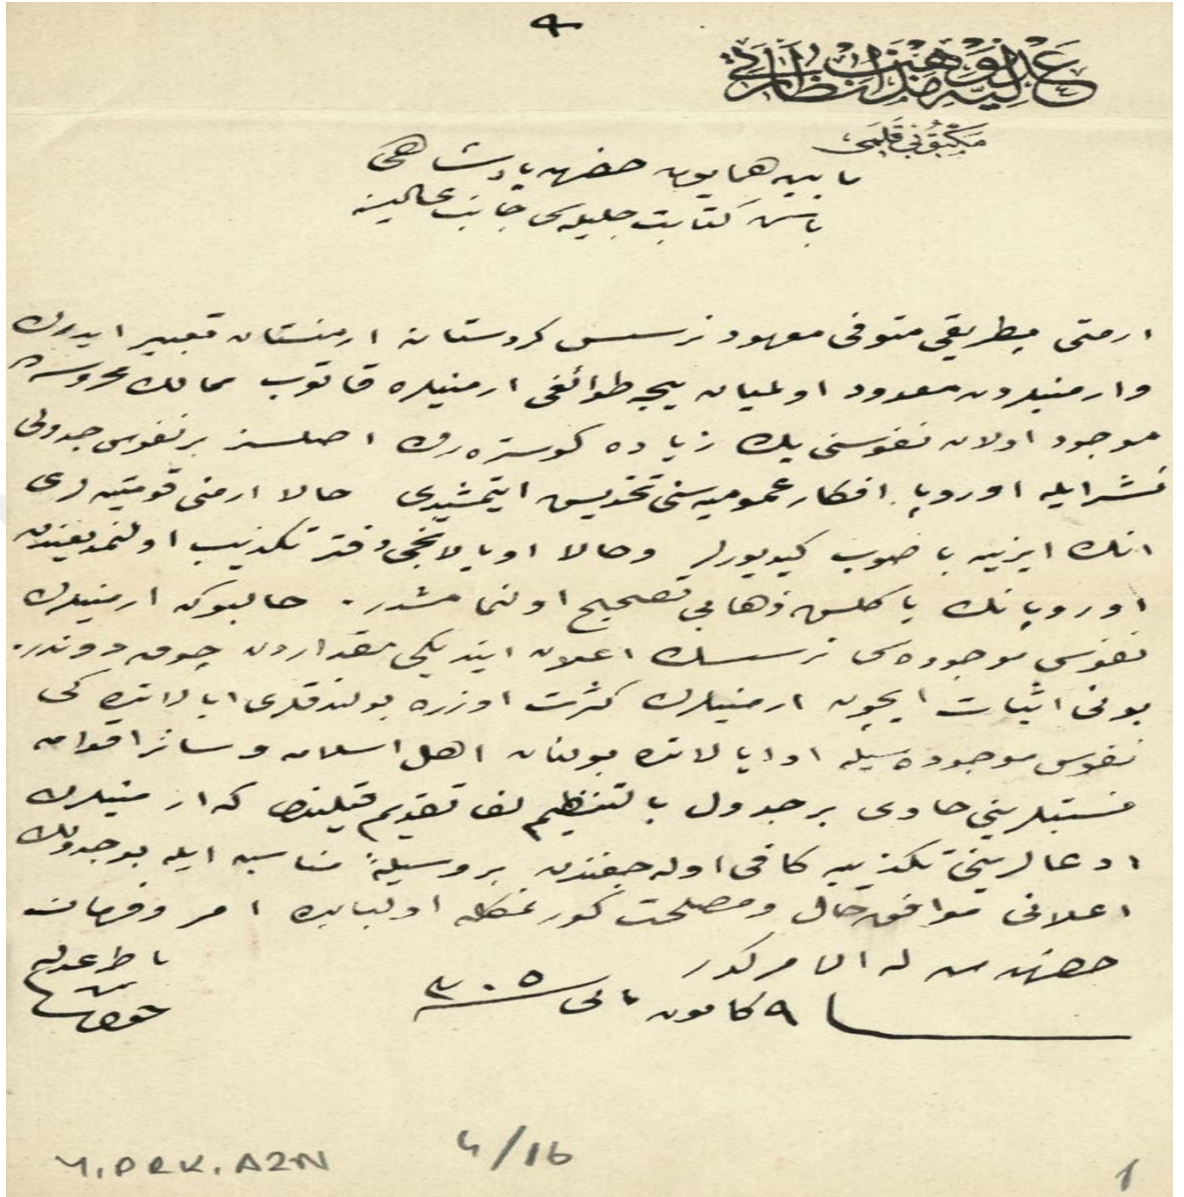 عدليه ومذاهب نظارتی
مكتوبی قلمی
مابین همایون حضرت پادشاهی
باش كتابت جلیله‌سی جانب عالیسنه
ارمنی بطریقی متوفی معهود نرسس كردستانه ارمنستان تعبیر ایدرك
وارمنیلردن معدود اولمیان نیجه طوائفی ارمنیلره قاتوب ممالك محروسه‌ده
موجود اولان نفوسنی پك زیاده كوستره‌رك اصلسز بر نفوس جدولی
نشر ایله اوروپا افكار عمومیه‌سنی تخدیش ایتمشیدی حالا ارمنی قومیته‌لری
انك ایزینه باصوب كیدیورلر وحالا او یالانجی دفتر تكذیب اولنمدیغندن
اوروپانك یاكلش ذهابی تصحیح اولنمامشدر. حالبوكه ارمنیلرك
نفوس موجوده‌سی نرسسك اعلان ایتدیكی مقداردن چوق دوندر.
بونی اثبات ایچون ارمنیلرك كثرت اوزره بولندقلری ایالاتده كی
نفوس موجوده‌سیله او ایالاتده بولنان اهل اسلام وسائر اقوامك
نسبتلرینی حاوی بر جدول بالتنظیم لفا تقدیم قیلندی كه ارمنیلرك
ادعالرینی تكذیبه كافی اوله‌جغندن بر وسیلهٔ مناسبه ایله بو جدولك
اعلانی موافق حال ومصلحت كورنمكله اولبابده امر وفرمان
حضرت من له الامر كدر
فی ٩ كانون ثانی سنه ٣٠٥
ناظر عدلیه
جودت
Y.PRK.AZN
4/16
1